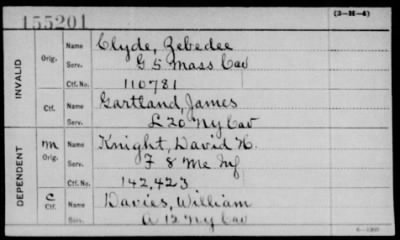 155201
(3-H-4)
INVALID
Orig.
Name Clyde, Zebedee
Serv. G 5 Mass Cav
Ctf. No. 110781
Ctf.
Name Gartland, James
Serv. L 20 Ny Cav
DEPENDENT
m
Orig.
Name Knight, David H.
Serv. F 8 Me Inf
Ctf. No. 142,423
C
Ctf.
Name Davies, William
Serv. A 12 Ny Cav